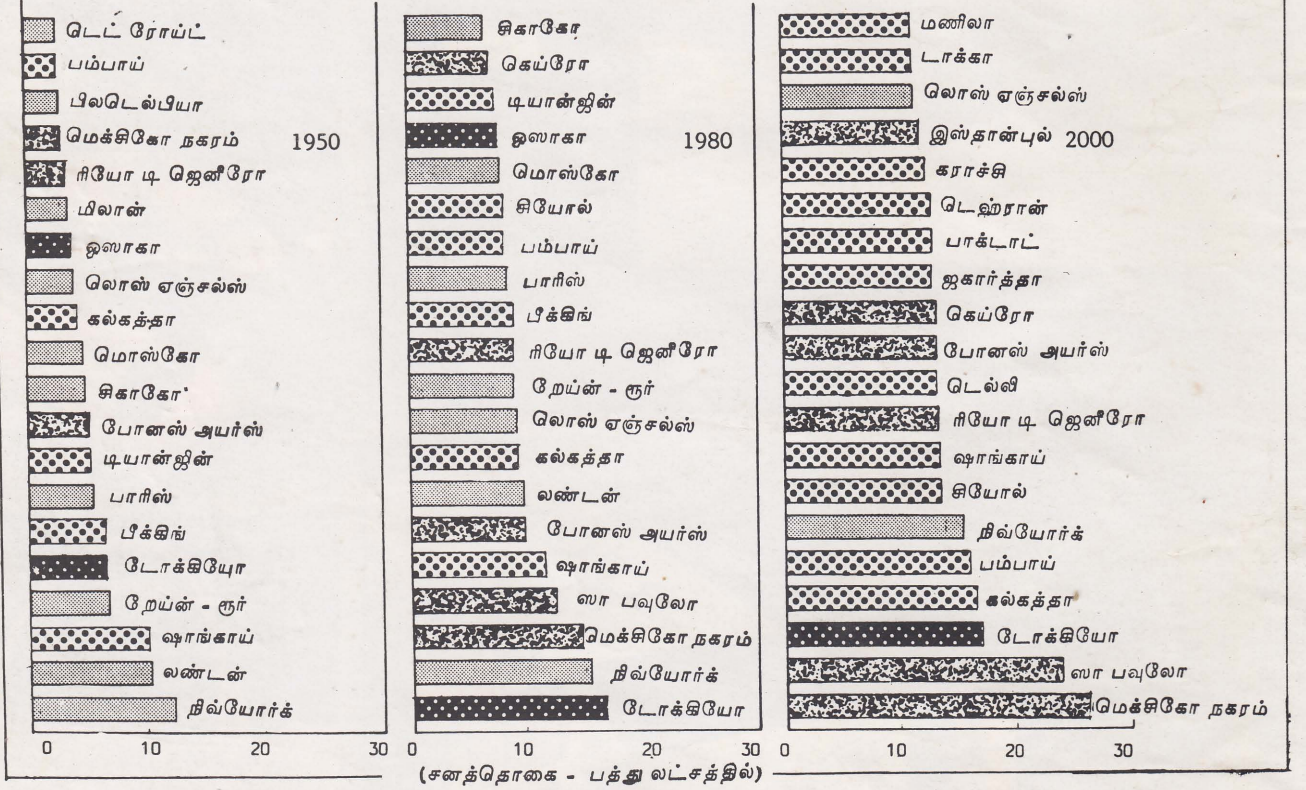 டெட் ரோய்ட்
பம்பாய்
பிலடெல்பியா
மெக்சிகோ நகரம்
1950
ரியோ டி ஜெனீரோ
மிலான்
ஒஸாகா
லொஸ் ஏஞ்சல்ஸ்
கல்கத்தா
மொஸ்கோ
சிகாகோ
போனஸ் அயர்ஸ்
டியான்ஜின்
பாரிஸ்
பீக்கிங்
டோக்கியோ
றேய்ன் - ரூர்
ஷாங்காய்
லண்டன்
நிவ்யோர்க்
0 10 20 30
சிகாகோ
கெய்ரோ
டியான்ஜின்
ஒஸாகா
1980
மொஸ்கோ
சியோல்
பம்பாய்
பாரிஸ்
பீக்கிங்
ரியோ டி ஜெனீரோ
றேய்ன் - ரூர்
லொஸ் ஏஞ்சல்ஸ்
கல்கத்தா
லண்டன்
போனஸ் அயர்ஸ்
ஷாங்காய்
ஸா பவுலோ
மெக்சிகோ நகரம்
நிவ்யோர்க்
டோக்கியோ
0 10 20 30
மணிலா
டாக்கா
லொஸ் ஏஞ்சல்ஸ்
இஸ்தான்புல் 2000
கராச்சி
டெஹ்ரான்
பாக்டாட்
ஜகார்த்தா
கெய்ரோ
போனஸ் அயர்ஸ்
டெல்லி
ரியோ டி ஜெனீரோ
ஷாங்காய்
சியோல்
நிவ்யோர்க்
பம்பாய்
கல்கத்தா
டோக்கியோ
ஸா பவுலோ
மெக்சிகோ நகரம்
0 10 20 30
(சனத்தொகை - பத்து லட்சத்தில்)